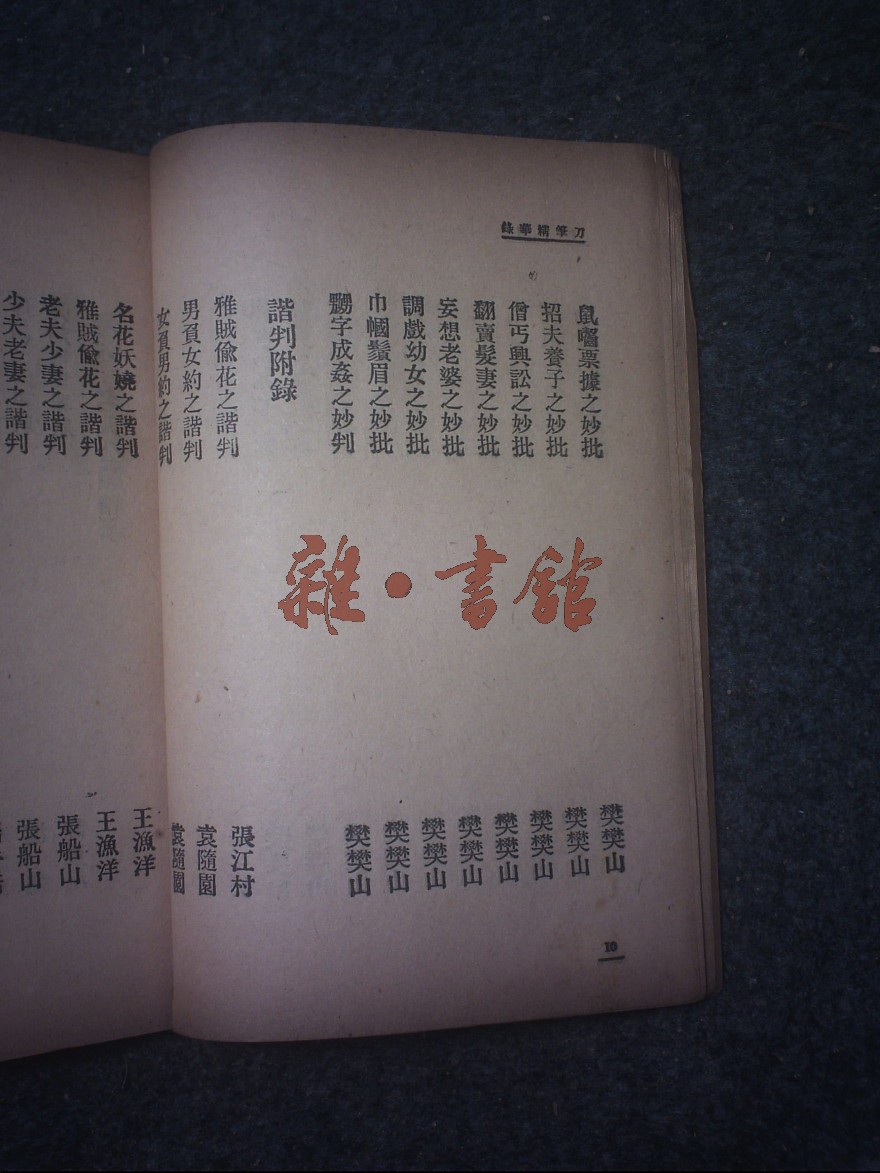 刀筆精華錄
鼠嚙票據之妙批 樊樊山
招夫養子之妙批 樊樊山
僧丐興訟之妙批 樊樊山
翻賣髮妻之妙批 樊樊山
妄想老婆之妙批 樊樊山
調戲幼女之妙批 樊樊山
巾幗鬚眉之妙批 樊樊山
嬲字成姦之妙判 樊樊山
諧判附錄
雅賊偷花之諧判 張江村
男負女約之諧判 袁隨園
女負男約之諧判 袁隨園
10
名花妖嬈之諧判 王漁洋
雅賊偷花之諧判 王漁洋
老夫少妻之諧判 張船山
少夫老妻之諧判 張船山
雜·書館